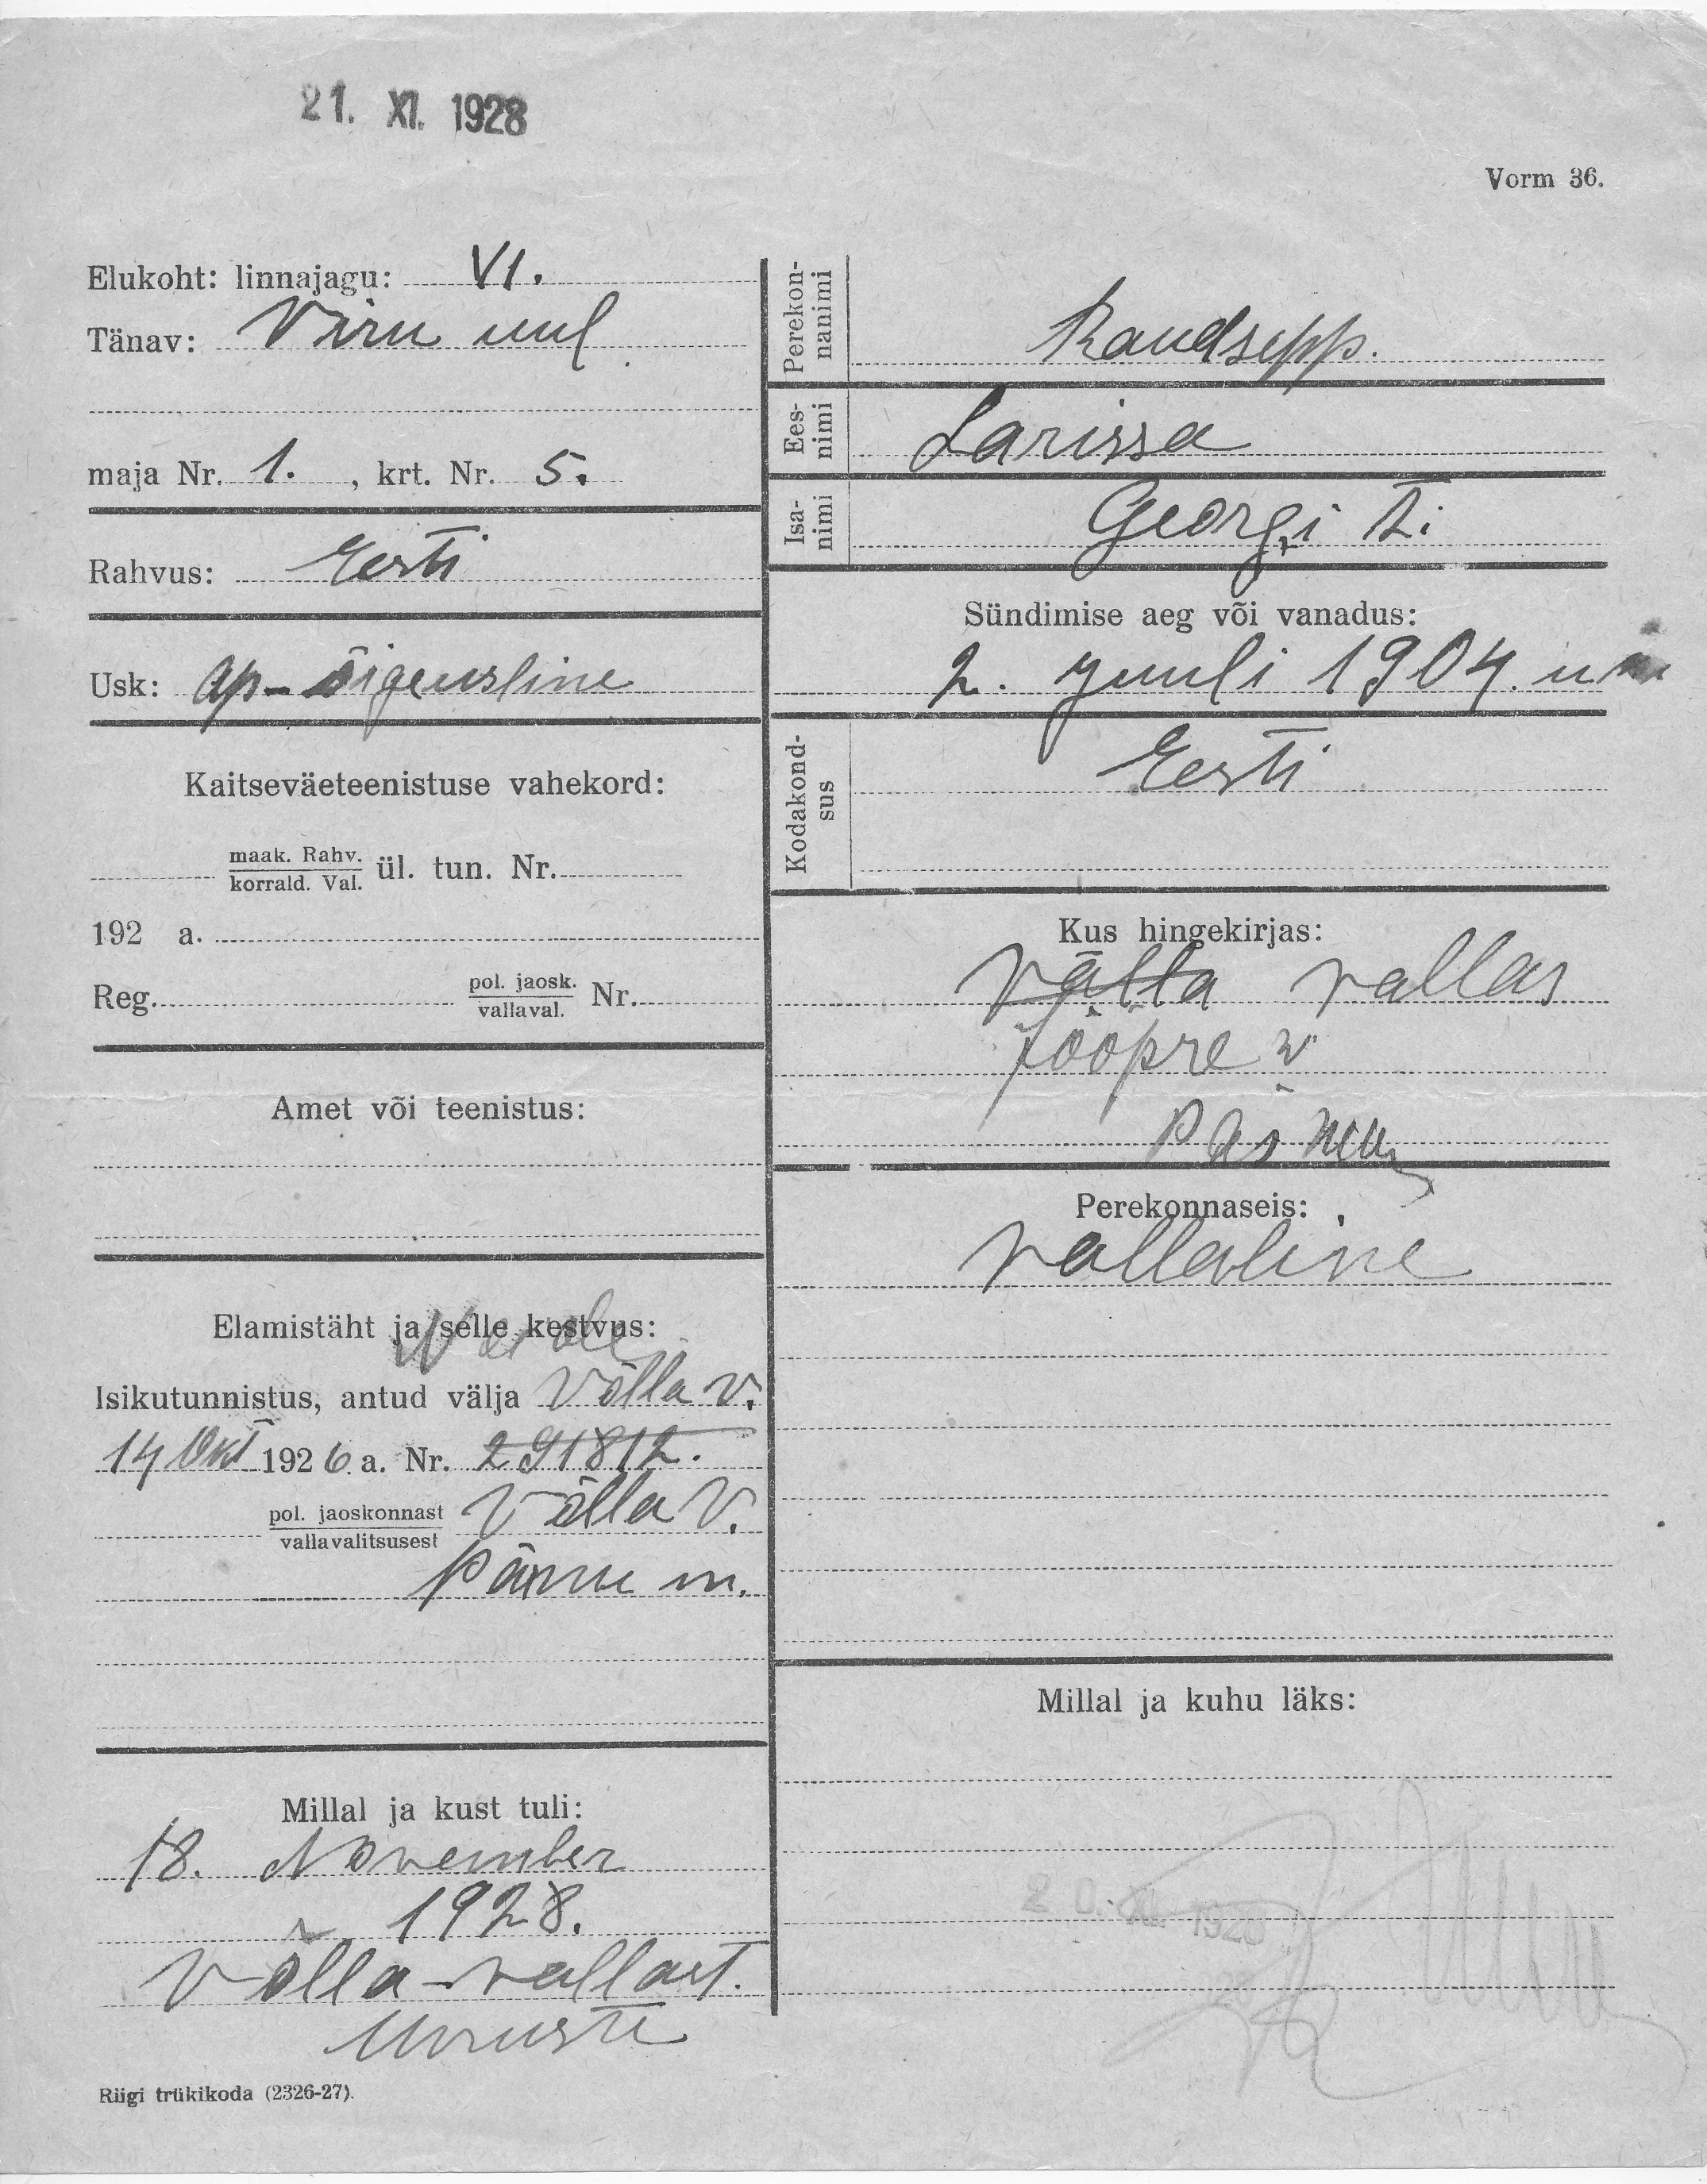 21. XI. 1928
Vorm 36.
Elukoht: linnajagu: VI.
Tänav: Viru uul
maja Nr. 1. , krt. Nr. 5.
Rahvus: Eesti
Usk: ap-õigeusline
Kaitseväeteenistuse vahekord:
maak. Rahv.
korrald. Val. ül. tun. Nr.
192 a.
Reg. pol. jaosk.
vallaval. Nr.
Amet või teenistus:
Elamistäht ja selle kestvus:
Isikutunnistus, antud välja Võlla v.
14 Okt 1926 a. Nr. 291812.
pol. jaoskonnast
vallavalitsusest Võlla V.
Pärnu m.
Millal ja kust tuli:
18. November
1928.
Võlla-vallast.
Riigi trükikoda (2326-27).
Perekon-
nanimi Raudsepp.
Ees-
nimi Larissa
Isa-
nimi Georgi t.
Sündimise aeg või vanadus:
2. juuli 1904.
Kodakond-
sus Eesti
Kus hingekirjas:
Võlla vallas
Jõõpre v
Pärnu
Perekonnaseis:
vallaline
Millal ja kuhu läks: